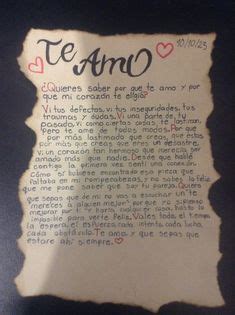 10/10/23
Te Amo
¿Quieres saber por que te amo y por
que mi corazón te eligio?
Vi tus defectos, vi tus inseguridades, tus
traumas y dudas. Vi una parte de tu
pasado, vi como ciertas cosas te lastiman,
Pero te amo de todos modos. Por que
por más lastimado que creas que estas
por más que creas que eres un desastre,
vi un corazón tan hermoso que merecía ser
amado más que nadie. Desde que hablé
contigo la primera vez sentí una conexión
Cómo si hubiese encontrado esa pieza que
faltaba en mi rompecabezas, y no sabes lo feliz
que me pone saber que soy tu pareja. Quiero
que sepas que de mi no vas a escuchar un "te
mereces a alguien mejor" por que yo pienso
mejorar por ti y haría cualquier cosa, hasta lo
imposible para verte feliz. Vales todo el tiempo
la espera, el esfuerzo, cada intento, cada lucha,
cada obstáculo. Te amo y que sepas que
estaré ahí siempre.